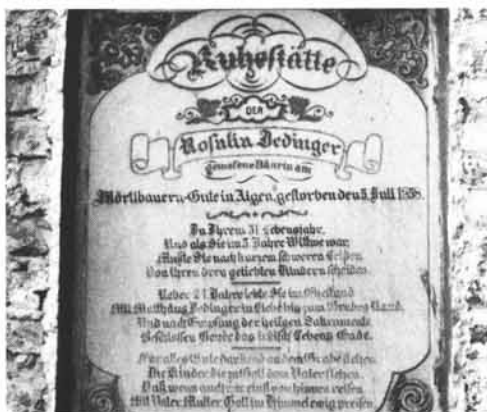 Ruhestätte
DER
Rosalia Dedinger
gewesene Bäurin am
Mörtlbauern-Gute in Aigen, gestorben den 5. Juli 1858.
In Ihrem 51 Lebensjahr,
Und als Sie im 3 Jahre Wittwe war,
Mußte Sie nach kurzem schweren Leiden
Von Ihren dern geliebten Kindern scheiden.
Ueber 21 Jahre lebte Sie im Ehestand
Mit Matthäus Dedinger in Liebe bis zum Grabes Rand.
Und nach Empfang der heiligen Sakramente
Beschloßen Gorde das irdisch Lebens Ende.
Für alles Gute dankend an dem Grabe stehen
Die Kinder, die zu Gott dem Vater flehen.
Daß wenn auch wir einst von hinnen reisen
Mit Vater, Mutter, Gott im Himmel ewig preisen